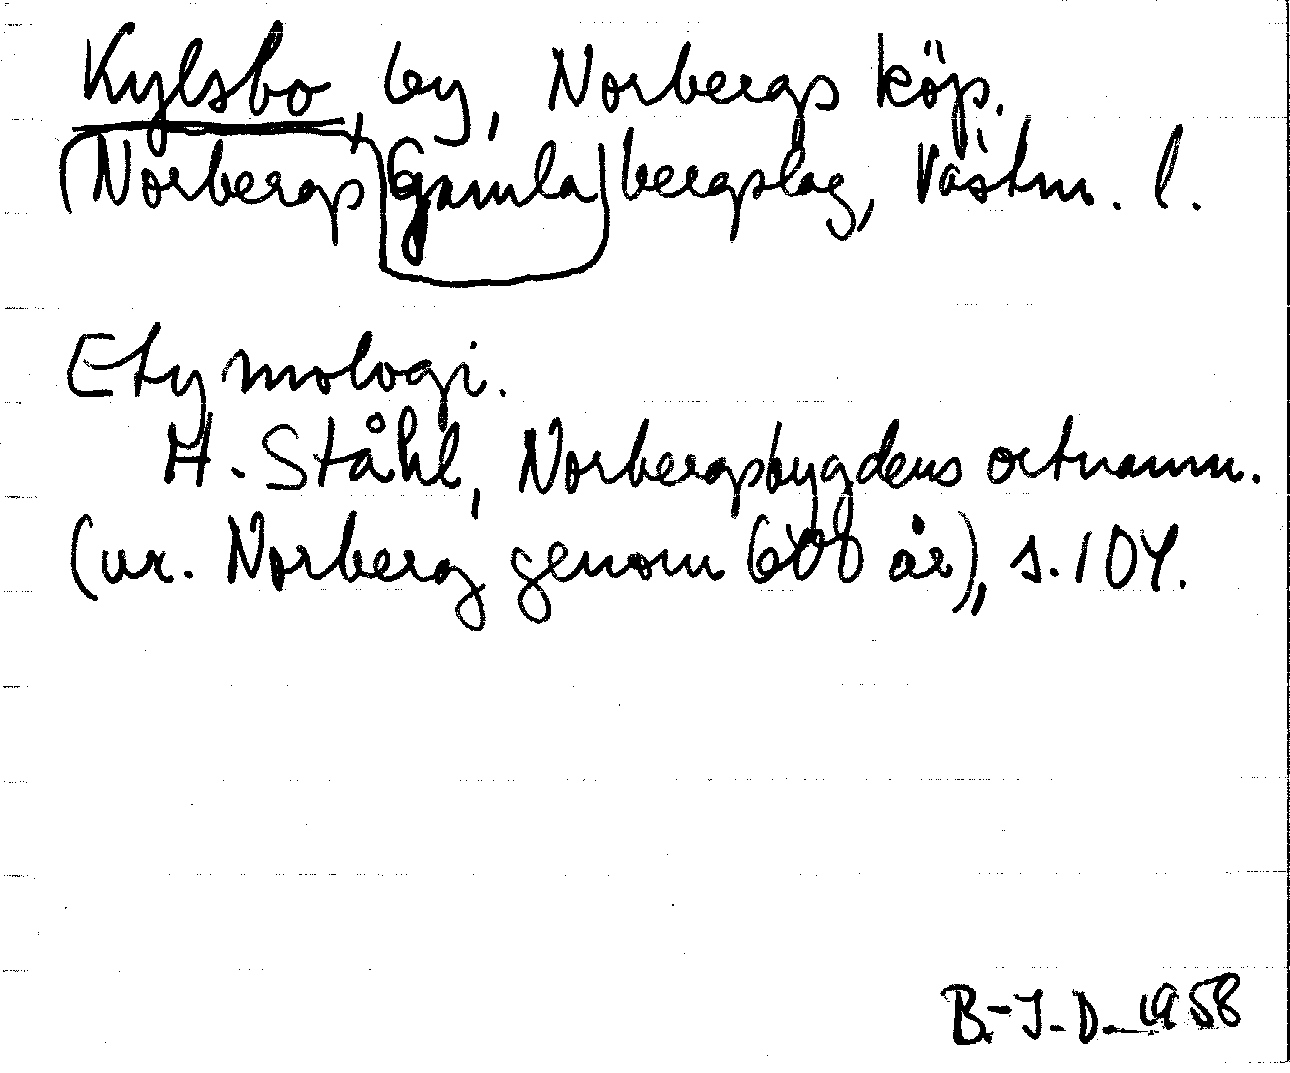 Kylsbo, by, Norbergs köp.
Norbergs Gamla bergslag, Västm. l.
Etymologi.
H. Ståhl, Norbergsbygdens ortnamn.
(ur. Norberg genom 600 år), s. 104.
B.-J. D. 1958